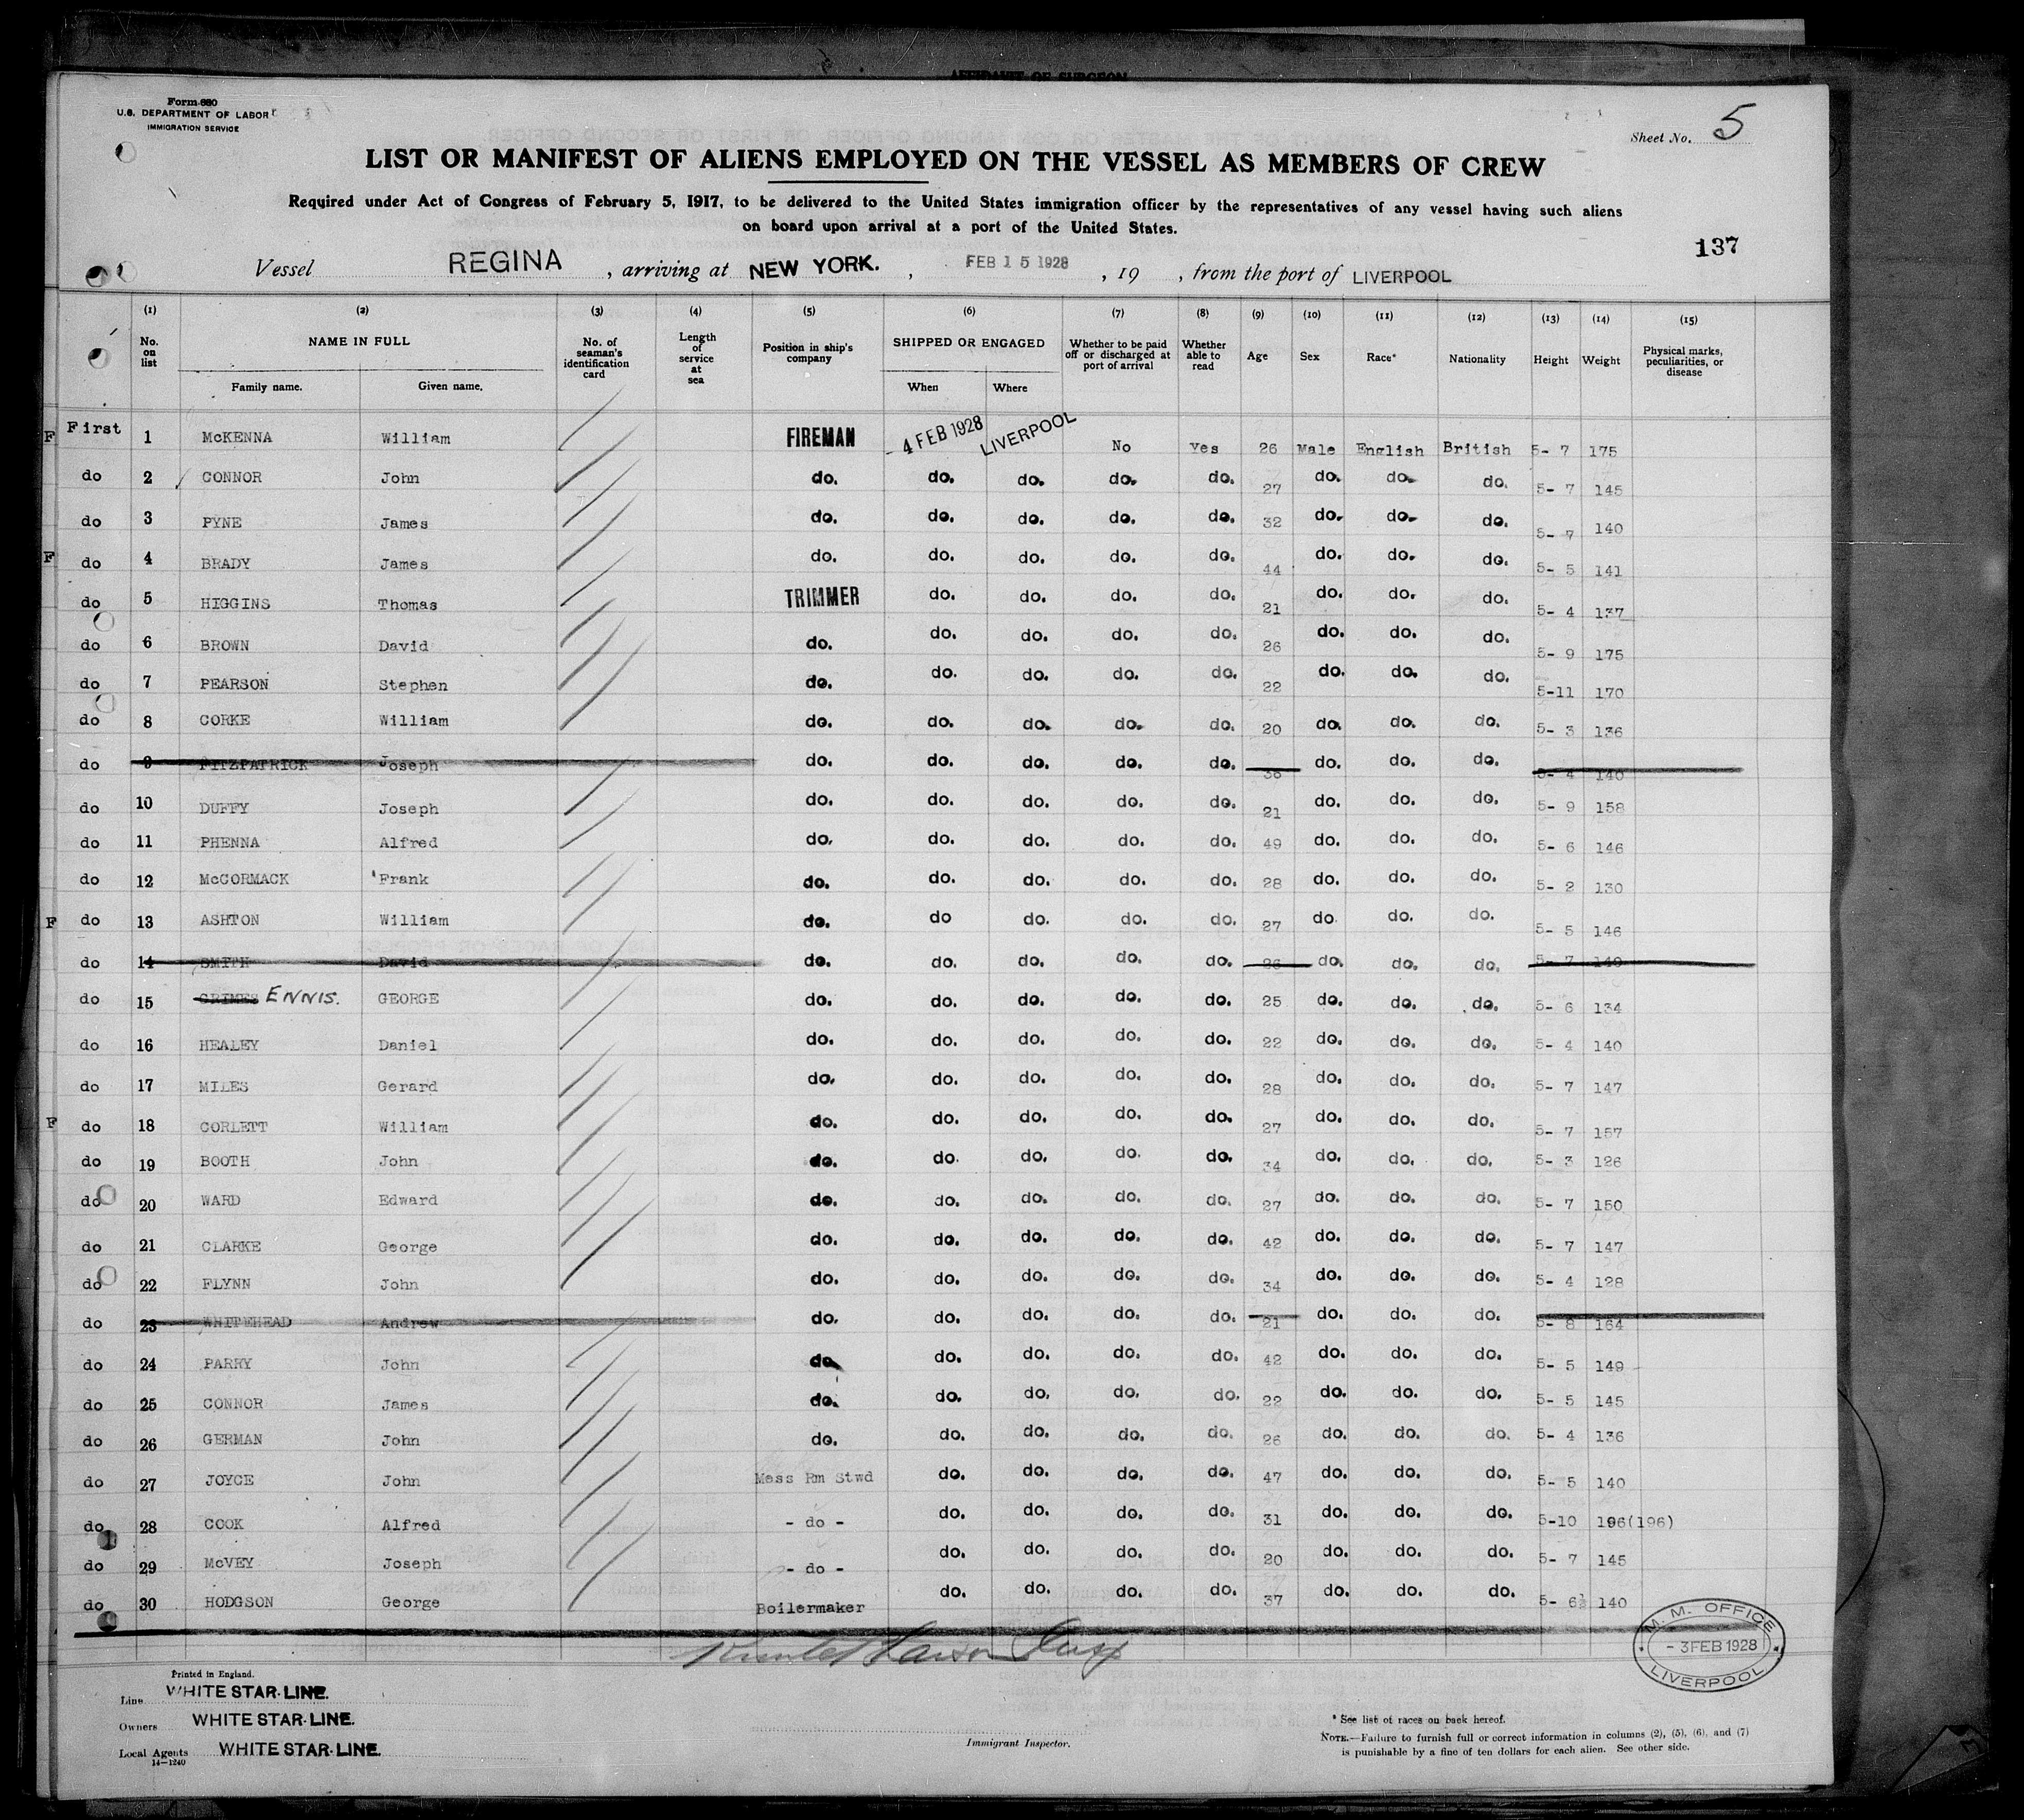 AFFIDAVIT OF SURGEON
Form 680
U.S. DEPARTMENT OF LABOR
IMMIGRATION SERVICE
Sheet No. 5
LIST OR MANIFEST OF ALIENS EMPLOYED ON THE VESSEL AS MEMBERS OF CREW
Required under Act of Congress of February 5, 1917, to be delivered to the United States immigration officer by the representatives of any vessel having such aliens
on board upon arrival at a port of the United States.
137
Vessel REGINA, arriving at NEW YORK., FEB 15 1928, 19 , from the port of LIVERPOOL
(1) (2) (3) (4) (5) (6) (7) (8) (9) (10) (11) (12) (13) (14) (15)
No. on list NAME IN FULL Family name. Given name. No. of seaman's identification card Length of service at sea Position in ship's company SHIPPED OR ENGAGED When Where Whether to be paid off or discharged at port of arrival Whether able to read Age Sex Race* Nationality Height Weight Physical marks, peculiarities, or disease
F First 1 McKENNA William FIREMAN 4 FEB 1928 LIVERPOOL No Yes 26 Male English British 5- 7 175
do 2 CONNOR John do. do. do. do. do. 27 do. do. do. 5- 7 145
do 3 PYNE James do. do. do. do. do. 32 do. do. do. 5- 7 140
F do 4 BRADY James do. do. do. do. do. 44 do. do. do. 5- 5 141
do 5 HIGGINS Thomas TRIMMER do. do. do. do. 21 do. do. do. 5- 4 137
do 6 BROWN David do. do. do. do. do. 26 do. do. do. 5- 9 175
do 7 PEARSON Stephen do. do. do. do. do. 22 do. do. do. 5-11 170
do 8 CORKE William do. do. do. do. do. 20 do. do. do. 5- 3 136
do 9 FITZPATRICK Joseph do. do. do. do. do. 38 do. do. do. 5- 4 140
do 10 DUFFY Joseph do. do. do. do. do. 21 do. do. do. 5- 9 158
do 11 PHENNA Alfred do. do. do. do. do. 49 do. do. do. 5- 6 146
do 12 McCORMACK Frank do. do. do. do. do. 28 do. do. do. 5- 2 130
F do 13 ASHTON William do. do do. do. do. 27 do. do. do. 5- 5 146
do 14 SMITH David do. do. do. do. do. 26 do. do. do. 5- 7 140
do 15 GRIMES ENNIS. GEORGE do. do. do. do. do. 25 do. do. do. 5- 6 134
do 16 HEALEY Daniel do. do. do. do. do. 22 do. do. do. 5- 4 140
do 17 MILES Gerard do. do. do. do. do. 28 do. do. do. 5- 7 147
F do 18 CORLETT William do. do. do. do. do. 27 do. do. do. 5- 7 157
do 19 BOOTH John do. do. do. do. do. 34 do. do. do. 5- 3 126
do 20 WARD Edward do. do. do. do. do. 27 do. do. do. 5- 7 150
do 21 CLARKE George do. do. do. do. do. 42 do. do. do. 5- 7 147
do 22 FLYNN John do. do. do. do. do. 34 do. do. do. 5- 4 128
do 23 WHITEHEAD Andrew do. do. do. do. do. 21 do. do. do. 5- 8 164
do 24 PARRY John do. do. do. do. do. 42 do. do. do. 5- 5 149
do 25 CONNOR James do. do. do. do. do. 22 do. do. do. 5- 5 145
do 26 GERMAN John do. do. do. do. do. 26 do. do. do. 5- 4 136
do 27 JOYCE John Mess Rm Stwd do. do. do. do. 47 do. do. do. 5- 5 140
do 28 COOK Alfred - do - do. do. do. do. 31 do. do. do. 5-10 196(196)
do 29 McVEY Joseph - do - do. do. do. do. 20 do. do. do. 5- 7 145
do 30 HODGSON George Boilermaker do. do. do. do. 37 do. do. do. 5- 6½ 140
M. M. OFFICE
- 3 FEB 1928
LIVERPOOL
Printed in England.
Line WHITE STAR LINE.
Owners WHITE STAR LINE.
Local Agents WHITE STAR LINE.
14-1240
Immigrant Inspector.
* See list of races on back hereof.
NOTE.—Failure to furnish full or correct information in columns (2), (5), (6), and (7)
is punishable by a fine of ten dollars for each alien. See other side.